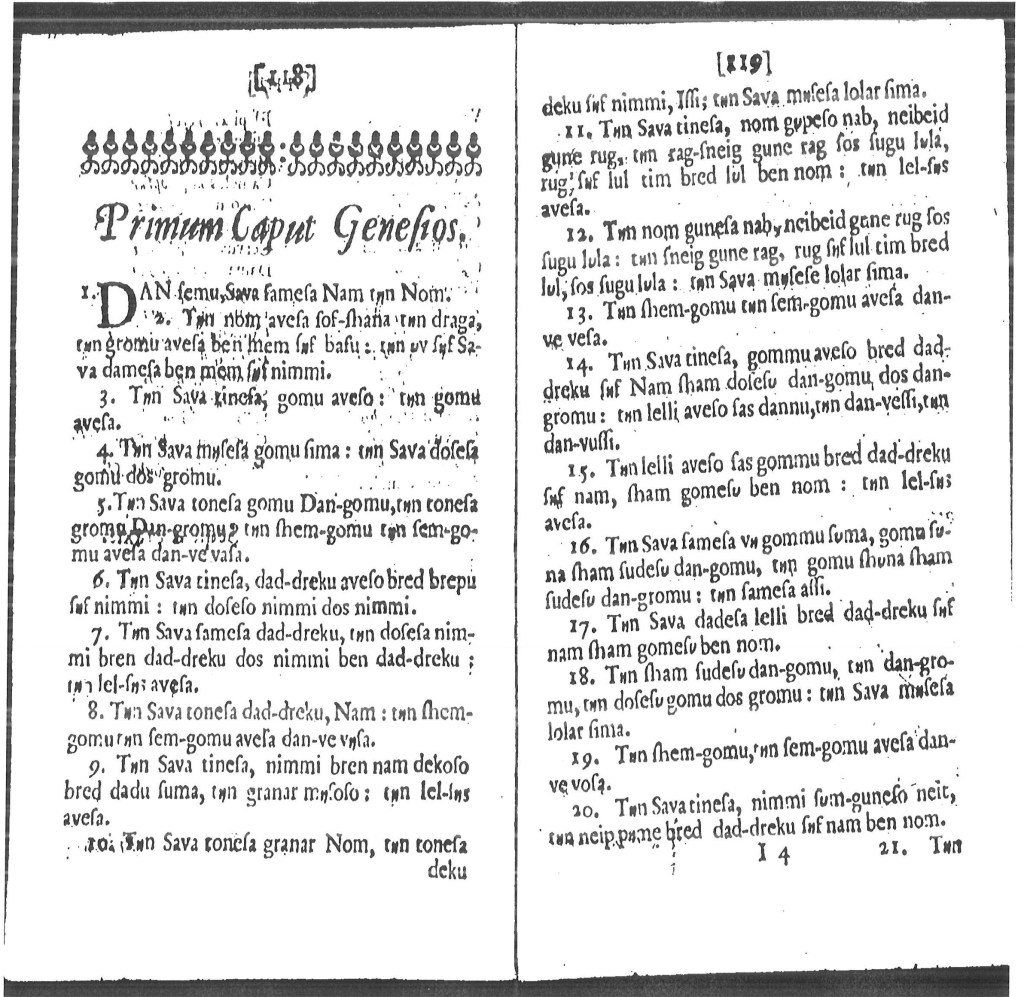 [118]
Primum Caput Geneſios.
1. DAN ſemu, Sava ſameſa Nam tꞟn Nom.
2. Tꞟn nom aveſa ſof-ſhana tꞟn draga,
tꞟn gromu aveſa ben mem ſꞟf baſu: tꞟn ꞟv ſꞟf Sa-
va dameſa ben mem ſꞟf nimmi.
3. Tꞟn Sava tineſa, gomu aveſo: tꞟn gomu
aveſa.
4. Tꞟn Sava mꞟſeſa gomu ſima: tꞟn Sava doſeſa
gomu dos gromu.
5. Tꞟn Sava toneſa gomu Dan-gomu, tꞟn toneſa
gromu Dan-gromu; tꞟn ſhem-gomu tꞟn ſem-go-
mu aveſa dan-ve vaſa.
6. Tꞟn Sava tineſa, dad-dreku aveſo bred brepu
ſꞟf nimmi: tꞟn doſeſo nimmi dos nimmi.
7. Tꞟn Sava ſameſa dad-dreku, tꞟn doſeſa nim-
mi bren dad-dreku dos nimmi ben dad-dreku;
tꞟn lel-ſꞟs aveſa.
8. Tꞟn Sava toneſa dad-dreku, Nam: tꞟn ſhem-
gomu tꞟn ſem-gomu aveſa dan-ve vꞟſa.
9. Tꞟn Sava tineſa, nimmi bren nam dekoſo
bred dadu ſuma, tꞟn granar mꞟſoſo: tꞟn lel-ſꞟs
aveſa.
10. Tꞟn Sava toneſa granar Nom, tꞟn toneſa
deku
[119]
deku ſꞟf nimmi, Iſſi; tꞟn Sava mꞟſeſa lolar ſima.
11. Tꞟn Sava tineſa, nom gꞟpeſo nab, neibeid
gune rug, tꞟn rag-ſneig gune rag ſos ſugu lula,
rug, ſꞟf lul tim bred lul ben nom: tꞟn lel-ſꞟs
aveſa.
12. Tꞟn nom guneſa nab, neibeid gune rug ſos
ſugu lula: tꞟn ſneig gune rag, rug ſꞟf lul tim bred
lul, ſos ſugu lula: tꞟn Sava mꞟſeſe lolar ſima.
13. Tꞟn ſhem-gomu tꞟn ſem-gomu aveſa dan-
ve veſa.
14. Tꞟn Sava tineſa, gommu aveſo bred dad-
dreku ſꞟf Nam ſham doſeſu dan-gomu, dos dan-
gromu: tꞟn lelli aveſo ſas dannu, tꞟn dan-veſſi, tꞟn
dan-vuſſi.
15. Tꞟn lelli aveſo ſas gommu bred dad-dreku
ſꞟf nam, ſham gomeſu ben nom: tꞟn lel-ſꞟs
aveſa.
16. Tꞟn Sava ſameſa vꞟ gommu ſuma, gomu ſu-
na ſham ſudeſu dan-gomu, tꞟn gomu ſhuna ſham
ſudeſu dan-gromu: tꞟn ſameſa aſſi.
17. Tꞟn Sava dadeſa lelli bred dad-dreku ſꞟf
nam ſham gomeſu ben nom.
18. Tꞟn ſham ſudeſu dan-gomu, tꞟn dan-gro-
mu, tꞟn doſeſu gomu dos gromu: tꞟn Sava mꞟſeſa
lolar ſima.
19. Tꞟn ſhem-gomu, tꞟn ſem-gomu aveſa dan-
ve voſa.
20. Tꞟn Sava tineſa, nimmi ſum-guneſo neit,
tꞟn neip pune bred dad-dreku ſꞟf nam ben nom.
I 4 21. Tꞟn